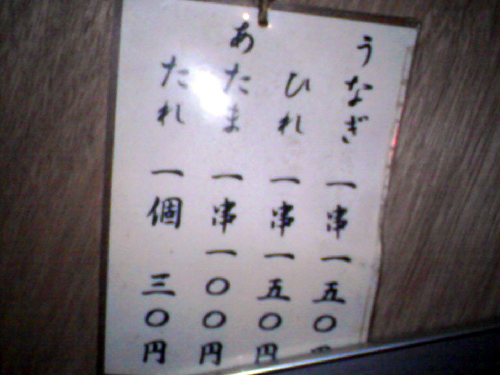 うなぎ 一串 一五〇
ひれ 一串 一五〇円
あたま 一串 一〇〇円
たれ 一個 三〇円